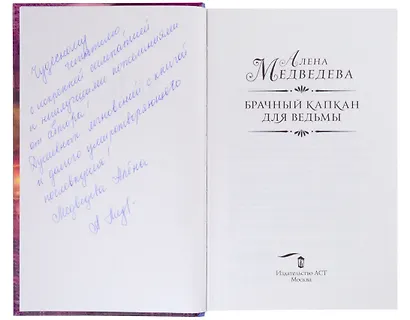 Чудесному
читателю
с искренней симпатией
и наилучшими пожеланиями
от автора!
Душевных мгновений с книгой
и долгого умиротворяющего
послевкусия!
Медведева Алёна
Алёна
Медведева
Брачный капкан
для ведьмы
Издательство АСТ
Москва